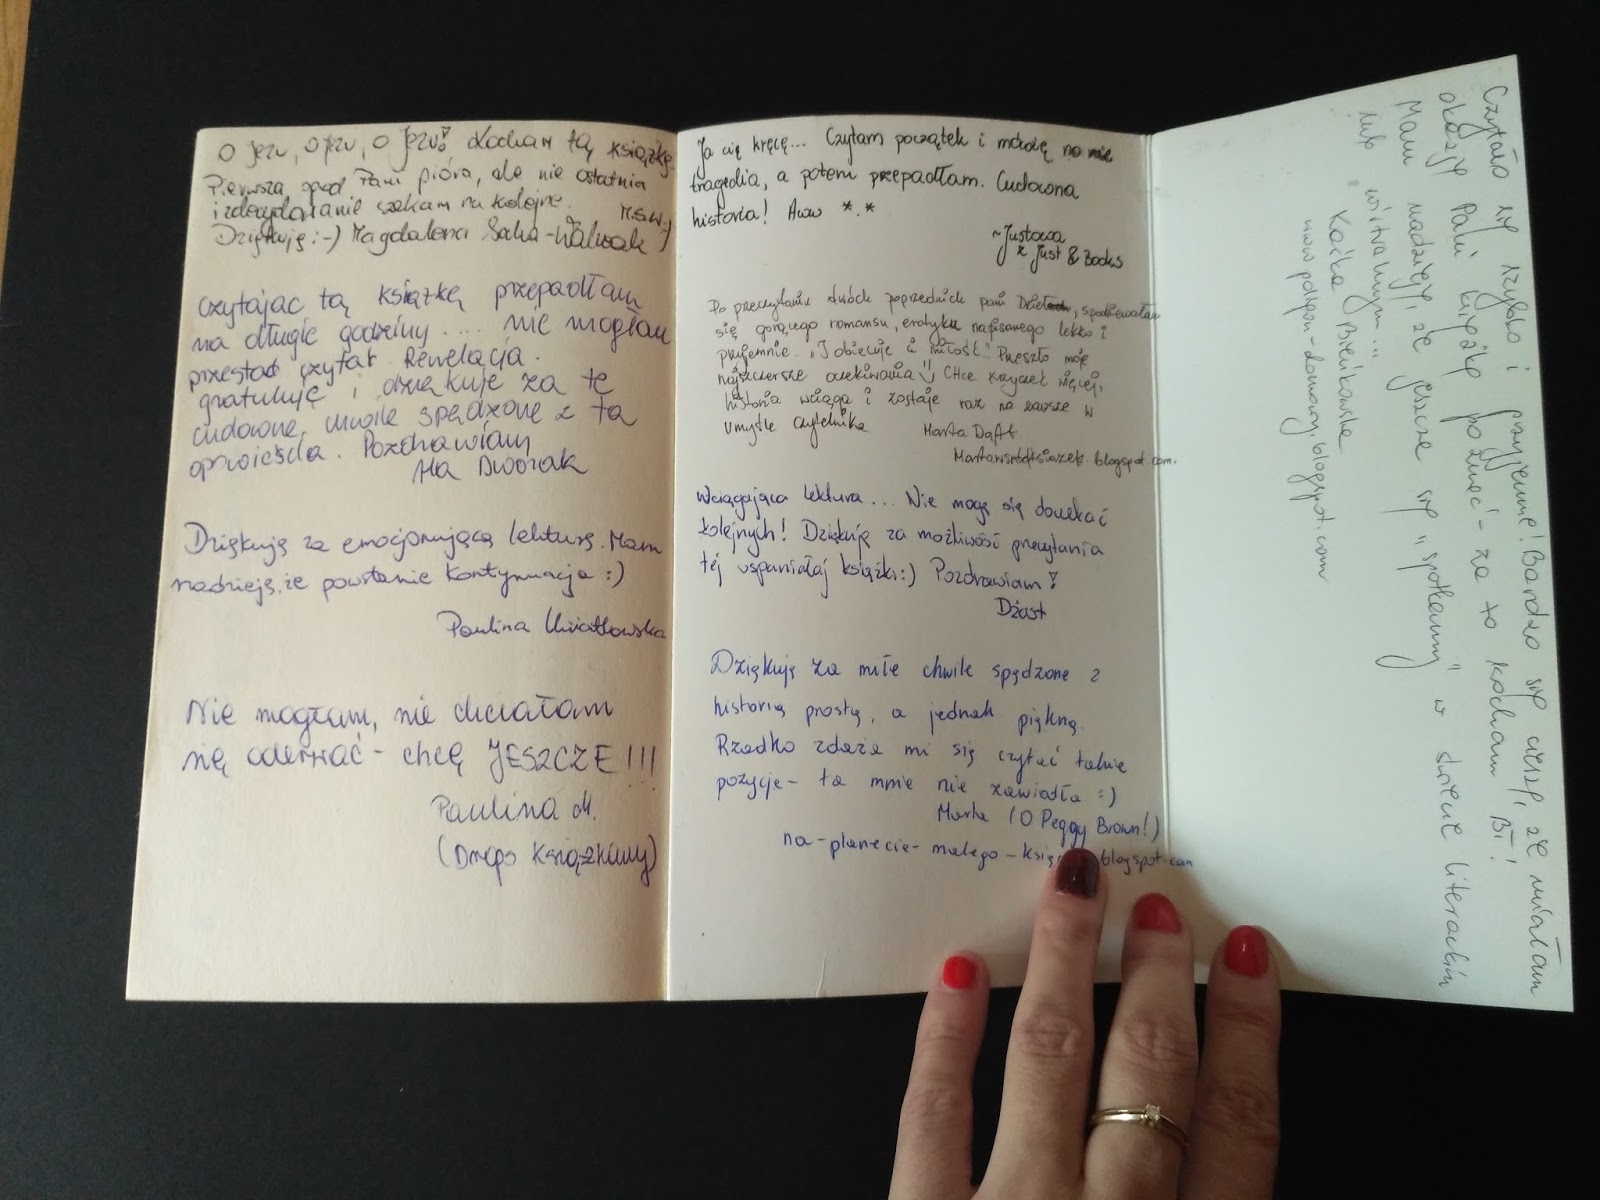 O jezu, o jezu, o jezu! Kocham tą książkę.
Pierwsza spod Pani pióra, ale nie ostatnia
i zdecydowanie czekam na kolejne. M.S.W. :)
Dziękuję :-) Magdalena
Czytając tą książkę przepadłam
na długie godziny .... nie mogłam
przestać czytać. Rewelacja.
gratuluję i dziękuje za te
cudowne chwile spędzone z tą
opowieścią. Pozdrawiam
Ala Dworzak
Dziękuję za emocjonującą lekturę. Mam
nadzieję, że powstanie kontynuacja :)
Paulina Kwiatkowska
Nie mogłam, nie chciałam
się oderwać - chcę JESZCZE!!!
Paulina M.
(Drops Książkowy)
Ja cię kręcę... Czytam początek i mówię no nie
tragedia, a potem przepadłam. Cudowna
historia! Aww *.*
~Justowa
z Just & Books
Po przeczytaniu dwóch poprzednich pani spodziewałam
się gorącego romansu, erotyku napisanego lekko i
przyjemnie. "I obiecuję ci miłość". Przeszło moje
najszczersze oczekiwania :) Chce krzyczeć więcej,
historia wciąga i zostaje raz na zawsze w
umyśle czytelnika Marta Daft
Martawsrodksiazek.blogspot.com.
Wciągająca lektura... Nie mogę się doczekać
kolejnych! Dziękuję za możliwość przeczytania
tej wspaniałej książki :) Pozdrawiam!
Dżast
Dziękuję za miłe chwile spędzone z
historią prostą, a jednak piękną.
Rzadko zdaża mi się czytać takie
pozycje - ta mnie nie zawiodła :)
Marta (O Peggy Brown!)
na-planecie-malego-blogspot.com
Czytało się szybko i przyjemnie! Bardzo się cieszę, że miałam
okazję Pani książkę poznać - za to kocham BT!
Mam nadzieję, że jeszcze się "spotkamy" w świecie literackim
lub wirtualnym...
Kaśka Bieńkowska
www.poligon-domowy.blogspot.com